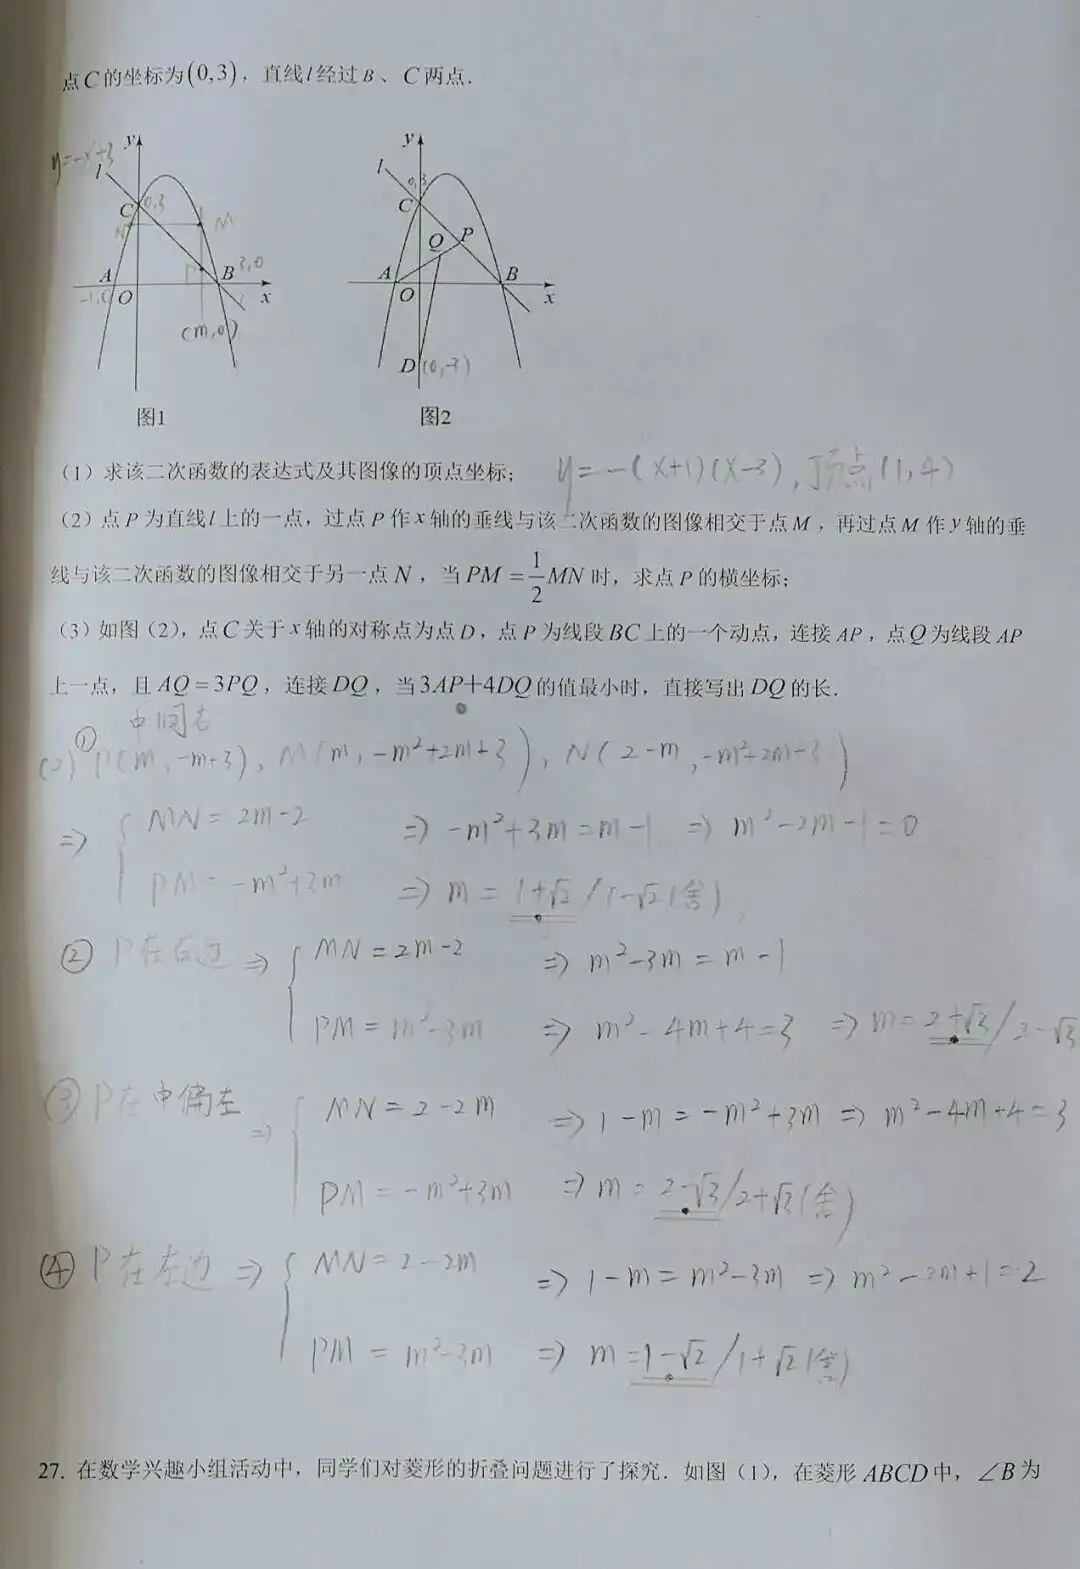 点C的坐标为(0,3)，直线l经过B、C两点.
y=-x+3
y
l
C
0,3
N
M
A
B
3,0
-1,0
O
x
(m,0)
图1
y
l
0,3
C
Q
P
A
B
O
x
D
(0,-3)
图2
(1)求该二次函数的表达式及其图像的顶点坐标；
y=-(x+1)(x-3),顶点(1,4)
(2)点P为直线l上的一点，过点P作x轴的垂线与该二次函数的图像相交于点M，再过点M作y轴的垂
线与该二次函数的图像相交于另一点N，当PM=1/2MN时，求点P的横坐标；
(3)如图(2)，点C关于x轴的对称点为点D，点P为线段BC上的一个动点，连接AP，点Q为线段AP
上一点，且AQ=3PQ，连接DQ，当3AP+4DQ的值最小时，直接写出DQ的长.
中间右
(2)① P(m,-m+3), M(m,-m²+2m+3), N(2-m,-m²+2m+3)
⇒ { MN=2m-2 ⇒ -m²+3m=m-1 ⇒ m²-2m-1=0
PM=-m²+3m ⇒ m=1+√2/1-√2(舍)
② P在右边 ⇒ { MN=2m-2 ⇒ m²-3m=m-1
PM=m²-3m ⇒ m²-4m+4=3 ⇒ m=2+√3/2-√3
③ P在中偏左 ⇒ { MN=2-2m ⇒ 1-m=-m²+3m ⇒ m²-4m+4=3
PM=-m²+3m ⇒ m=2-√3/2+√3(舍)
④ P在左边 ⇒ { MN=2-2m ⇒ 1-m=m²-3m ⇒ m²-2m+1=2
PM=m²-3m ⇒ m=1-√2/1+√2(舍)
27. 在数学兴趣小组活动中，同学们对菱形的折叠问题进行了探究．如图(1)，在菱形ABCD中，∠B为